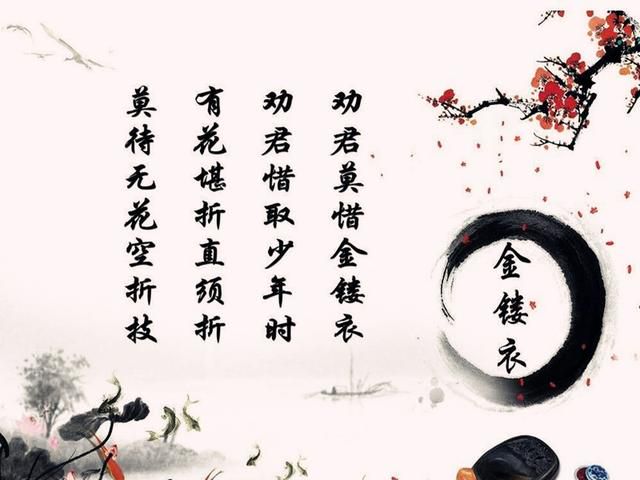 金镂衣
劝君莫惜金镂衣
劝君惜取少年时
有花堪折直须折
莫待无花空折技